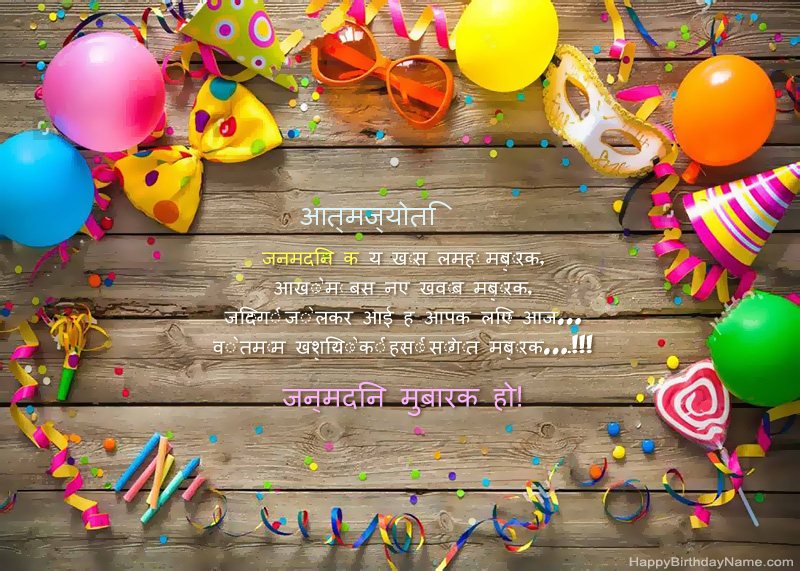 आत्मज्योति
जन्मदिन के ये खास लम्हें मुबारक,
आँखों में बसे नए ख्वाब मुबारक,
जिंदगी जो लेकर आई है आपके लिए आज...
वो तमाम खुशियों की हंसीं सौगात मुबारक...!!!
जन्मदिन मुबारक हो!
HappyBirthdayName.com